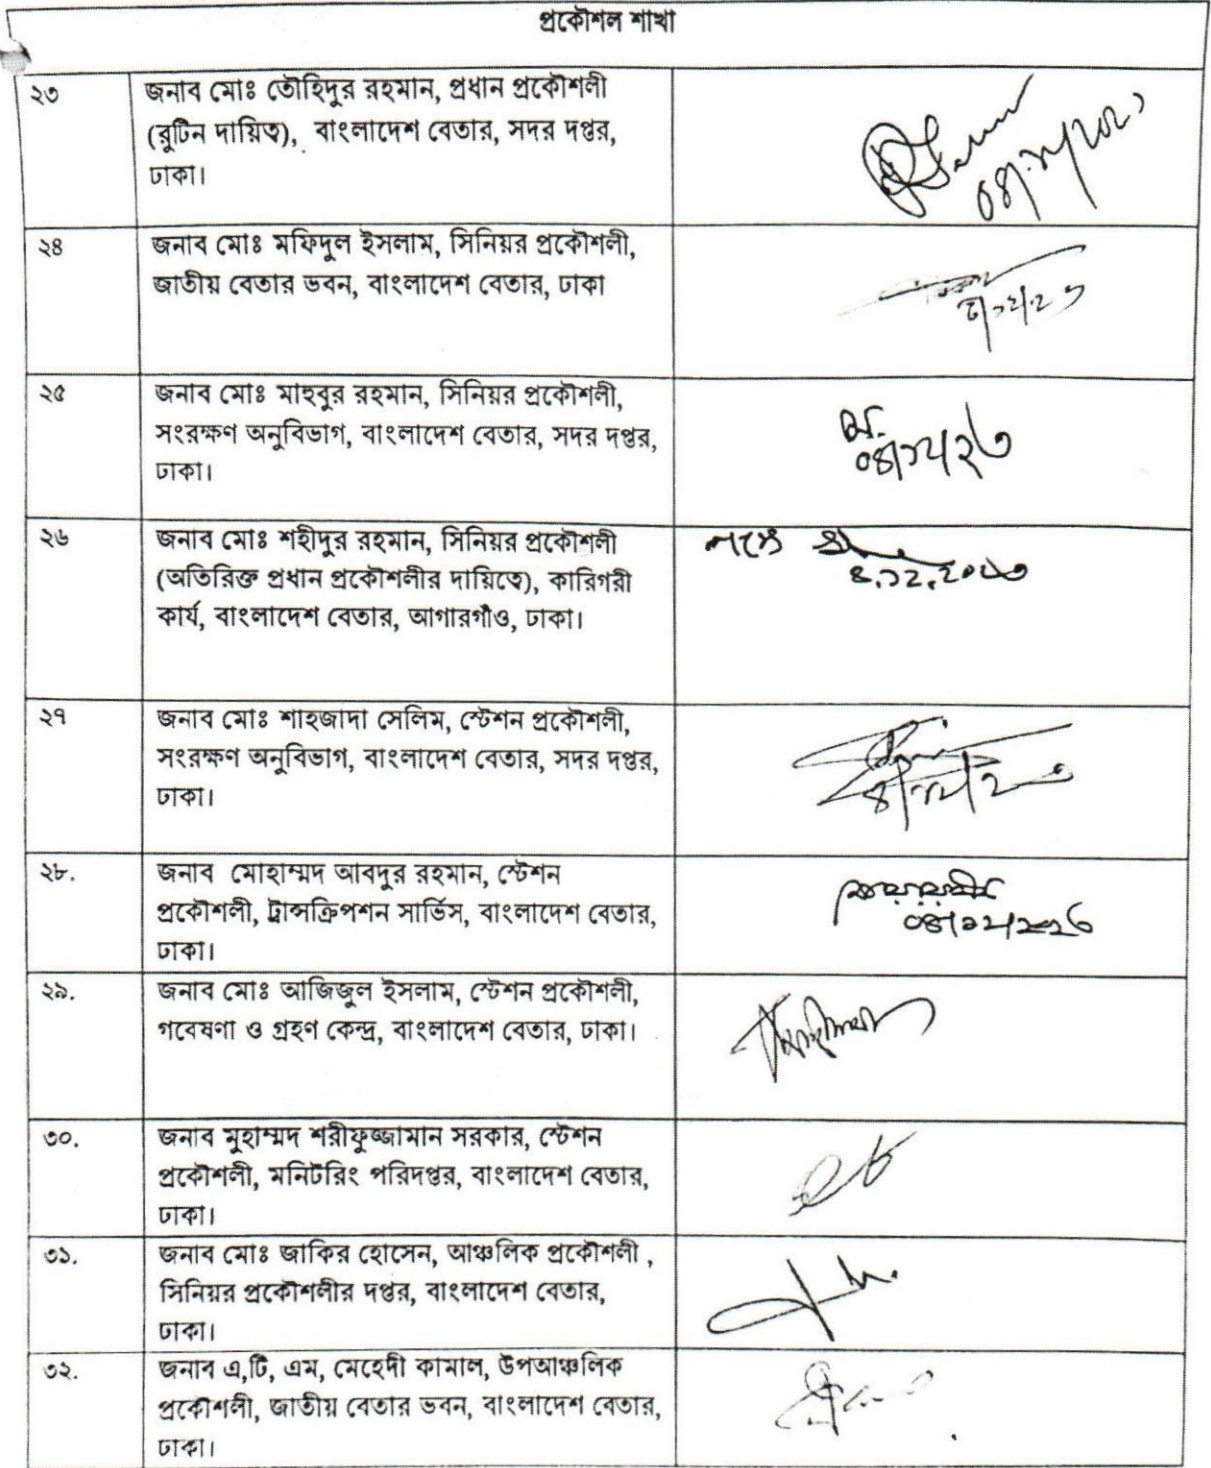 প্রকৌশল শাখা
২৩
জনাব মোঃ তৌহিদুর রহমান, প্রধান প্রকৌশলী
(রুটিন দায়িত্ব), বাংলাদেশ বেতার, সদর দপ্তর,
ঢাকা।
২৪
জনাব মোঃ মফিদুল ইসলাম, সিনিয়র প্রকৌশলী,
জাতীয় বেতার ভবন, বাংলাদেশ বেতার, ঢাকা
২৫
জনাব মোঃ মাহবুর রহমান, সিনিয়র প্রকৌশলী,
সংরক্ষণ অনুবিভাগ, বাংলাদেশ বেতার, সদর দপ্তর,
ঢাকা।
০৪/১২/২৩
২৬
জনাব মোঃ শহীদুর রহমান, সিনিয়র প্রকৌশলী
(অতিরিক্ত প্রধান প্রকৌশলীর দায়িত্বে), কারিগরী
কার্য, বাংলাদেশ বেতার, আগারগাঁও, ঢাকা।
৪.১২.২০২৩
২৭
জনাব মোঃ শাহজাদা সেলিম, স্টেশন প্রকৌশলী,
সংরক্ষণ অনুবিভাগ, বাংলাদেশ বেতার, সদর দপ্তর,
ঢাকা।
৪/১২/২৩
২৮.
জনাব মোহাম্মদ আবদুর রহমান, স্টেশন
প্রকৌশলী, ট্রান্সক্রিপশন সার্ভিস, বাংলাদেশ বেতার,
ঢাকা।
০৪/১২/২০২৩
২৯.
জনাব মোঃ আজিজুল ইসলাম, স্টেশন প্রকৌশলী,
গবেষণা ও গ্রহণ কেন্দ্র, বাংলাদেশ বেতার, ঢাকা।
৩০.
জনাব মুহাম্মদ শরীফুজ্জামান সরকার, স্টেশন
প্রকৌশলী, মনিটরিং পরিদপ্তর, বাংলাদেশ বেতার,
ঢাকা।
৩১.
জনাব মোঃ জাকির হোসেন, আঞ্চলিক প্রকৌশলী ,
সিনিয়র প্রকৌশলীর দপ্তর, বাংলাদেশ বেতার,
ঢাকা।
৩২.
জনাব এ,টি, এম, মেহেদী কামাল, উপআঞ্চলিক
প্রকৌশলী, জাতীয় বেতার ভবন, বাংলাদেশ বেতার,
ঢাকা।